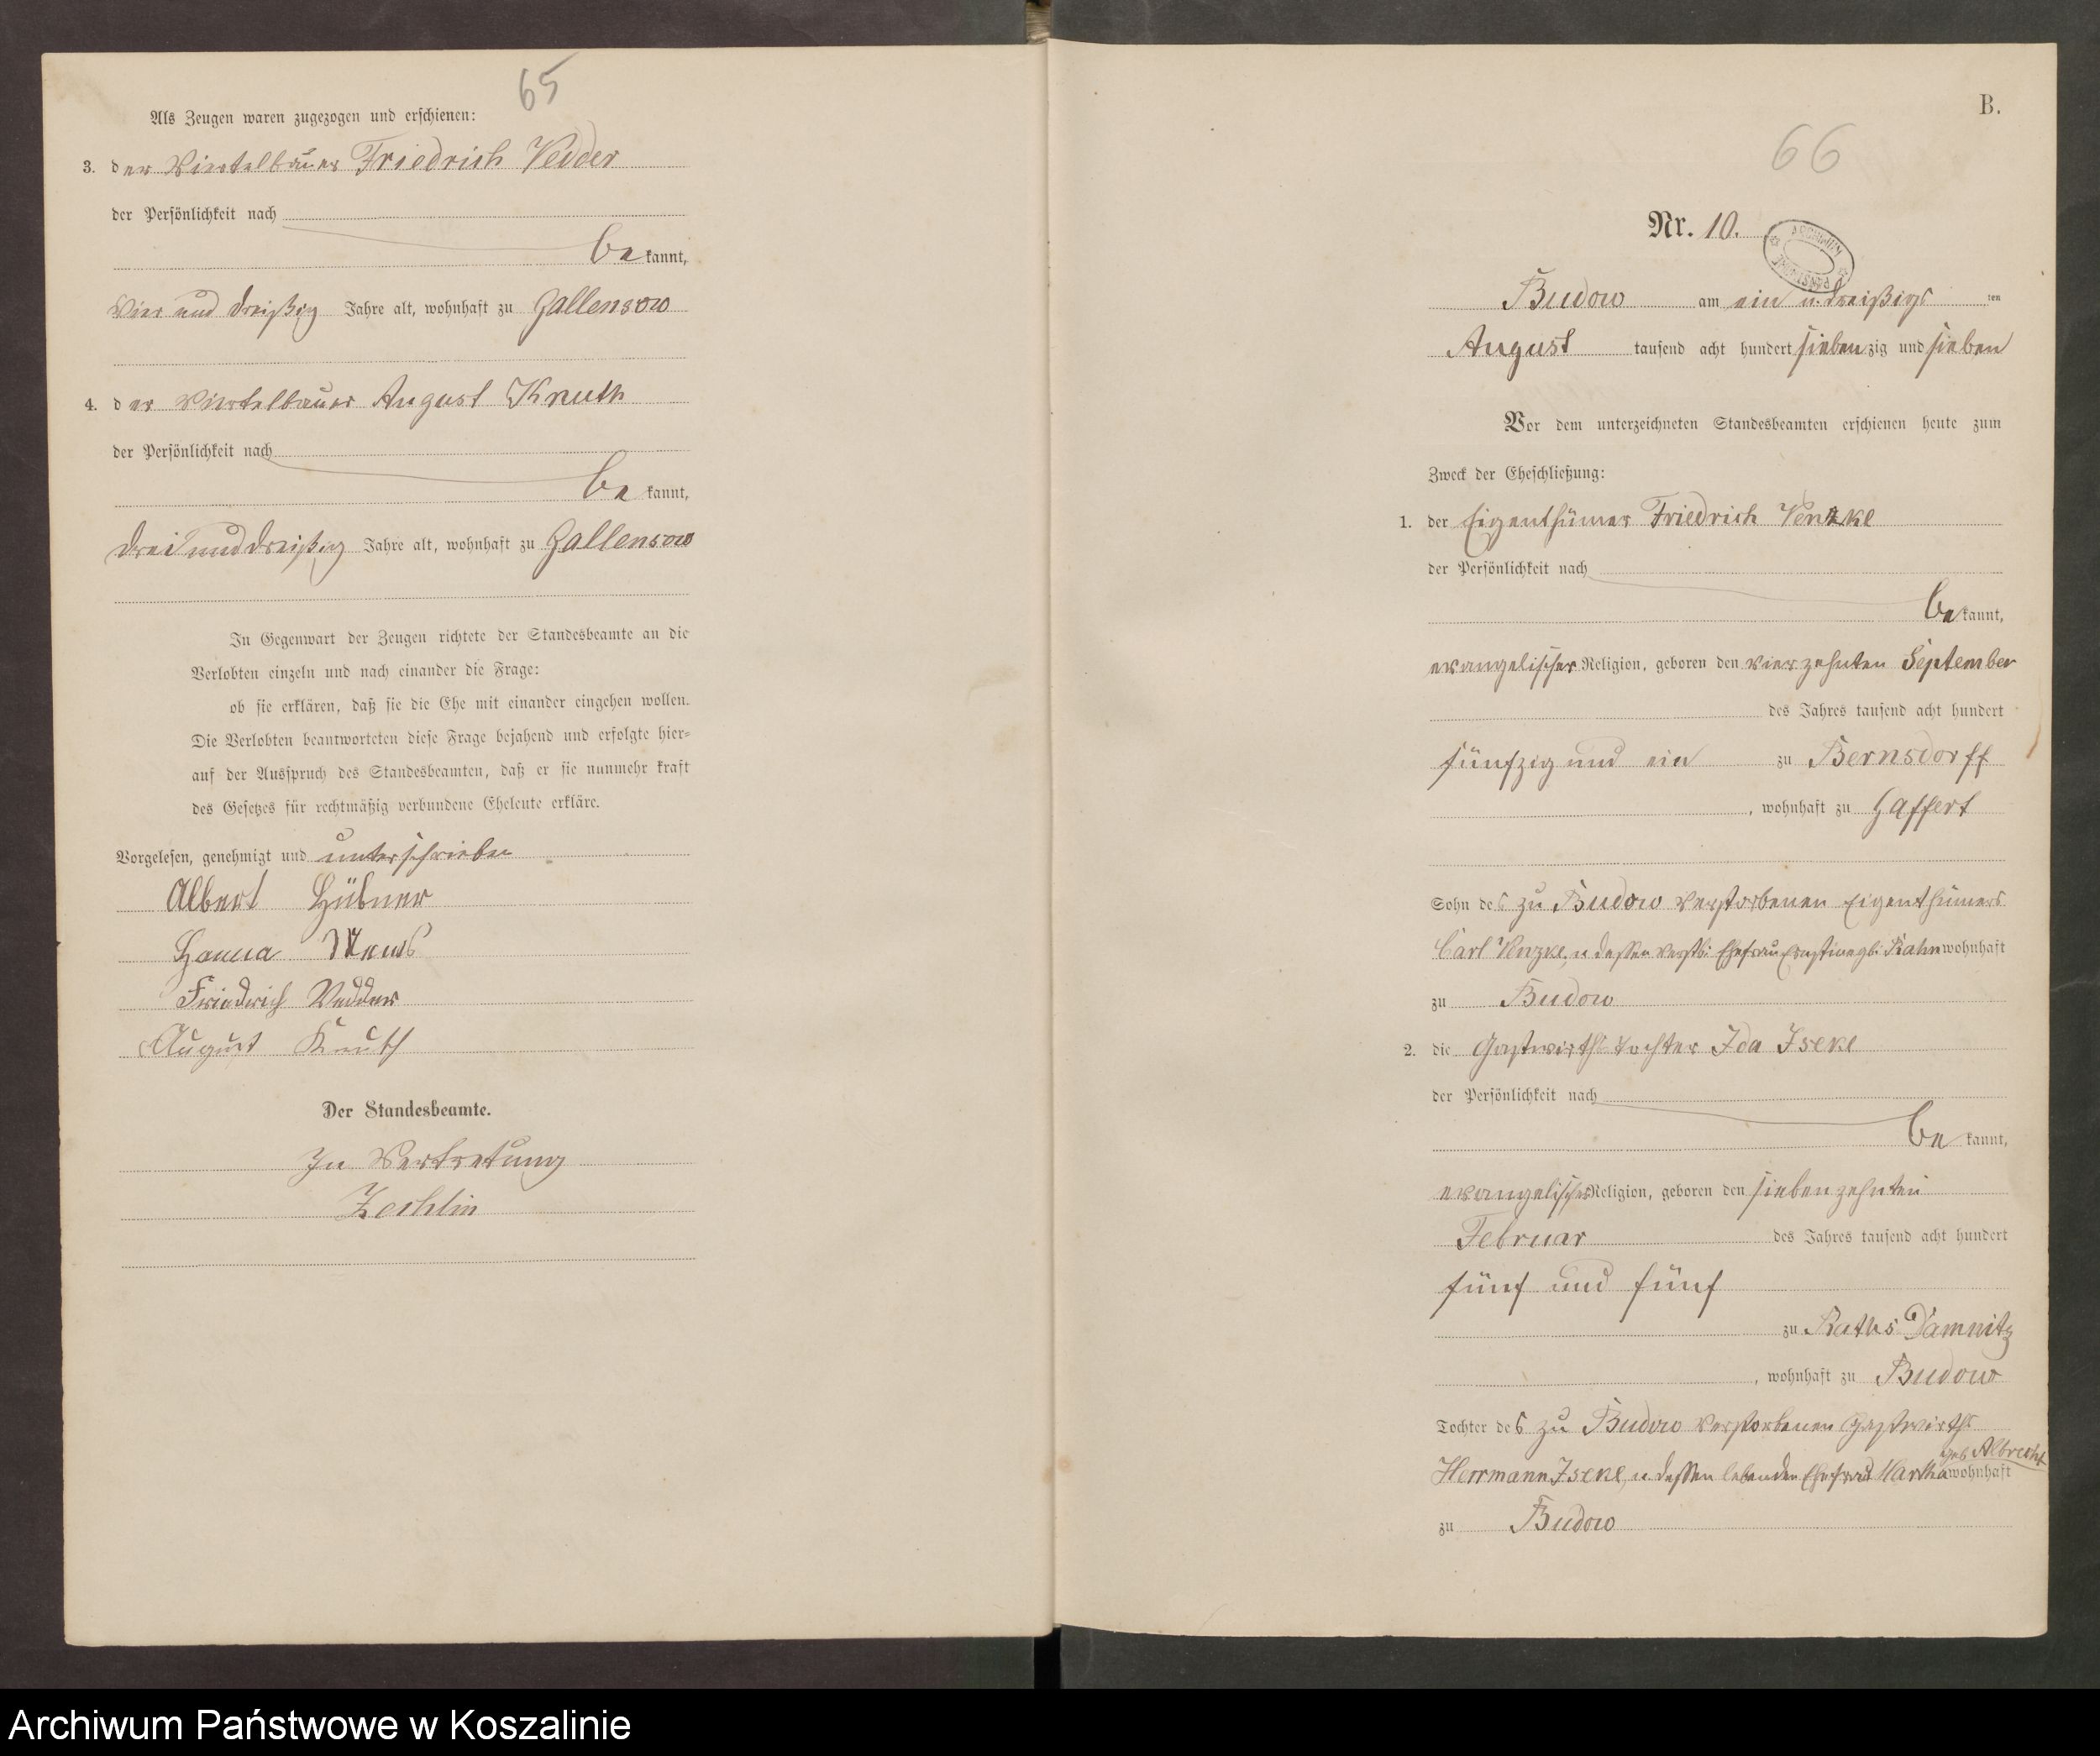 65
Als Zeugen waren zugezogen und erschienen:
3. der Viertelbauer Friedrich Vedder
der Persönlichkeit nach
bekannt,
vier und dreißig Jahre alt, wohnhaft zu Gallensow
4. der Viertelbauer August Knuth
der Persönlichkeit nach
bekannt,
drei und dreißig Jahre alt, wohnhaft zu Gallensow
In Gegenwart der Zeugen richtete der Standesbeamte an die
Verlobten einzeln und nach einander die Frage:
ob sie erklären, daß sie die Ehe mit einander eingehen wollen.
Die Verlobten beantworteten diese Frage bejahend und erfolgte hier-
auf der Ausspruch des Standesbeamten, daß er sie nunmehr kraft
des Gesetzes für rechtmäßig verbundene Eheleute erkläre.
Vorgelesen, genehmigt und unterschrieben
Albert Hübner
Hanna
Friedrich Vedder
August Knuth
Der Standesbeamte.
In Vertretung
Zechlin
B.
66
Nr. 10.
ARCHIWUM PAŃSTWOWE
Budow am ein u. dreißigs ten
August tausend acht hundert siebenzig und sieben
Vor dem unterzeichneten Standesbeamten erschienen heute zum
Zweck der Eheschließung:
1. der Eigenthümer Friedrich Venzke
der Persönlichkeit nach
bekannt,
evangelischer Religion, geboren den vierzehnten September
des Jahres tausend acht hundert
fünfzig und ein zu Bernsdorff
, wohnhaft zu Gaffert
Sohn des zu Budow verstorbenen Eigenthümers
Carl Venzke, u dessen verstb: Ehefrau Ernstine gb: Rahn wohnhaft
zu Budow
2. die Gastwirths Tochter Ida Iseke
der Persönlichkeit nach
bekannt,
evangelischer Religion, geboren den siebenzehnten
Februar des Jahres tausend acht hundert
fünf und fünf
zu Raths Damnitz
, wohnhaft zu Budow
Tochter des zu Budow verstorbenen Gastwirths
geb Albrecht
Herrmann Iseke, u dessen lebenden Ehefrau Martha wohnhaft
zu Budow
Archiwum Państwowe w Koszalinie